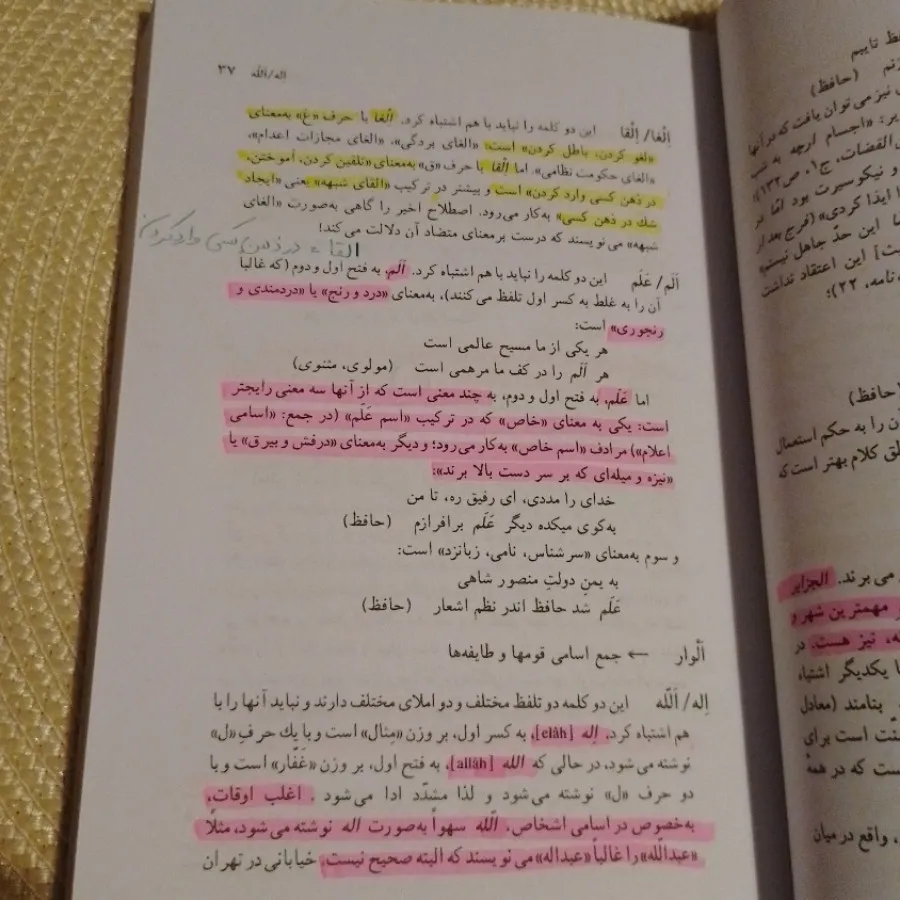 اله/الله ۳۷
اِلْغا/ اِلْقا این دو کلمه را نباید با هم اشتباه کرد. اِلْغا با حرف «غ» به‌معنای
«لغو کردن، باطل کردن» است: «الغای بردگی». «الغای مجازات اعدام»،
«الغای حکومت نظامی». اما اِلْقا با حرف «ق» به‌معنای «تلقین کردن، آموختن،
در ذهن کسی وارد کردن» است و بیشتر در ترکیب «القای شبهه» یعنی «ایجاد
شك در ذهن کسی» به‌کار می‌رود. اصطلاح اخیر را گاهی به‌صورت «الغای
شبهه» می‌نویسند که درست برمعنای متضاد آن دلالت می‌کند!
القا = در ذهن کسی وارد کردن
اَلَم/ عَلَم این دو کلمه را نباید با هم اشتباه کرد. اَلَم، به فتح اول و دوم (که غالباً
آن را به غلط به کسر اول تلفظ می‌کنند)، به‌معنای «درد و رنج» یا «دردمندی و
رنجوری» است:
هر یکی از ما مسیح عالمی است
هر اَلَم را در کف ما مرهمی است (مولوی، مثنوی)
اما عَلَم، به فتح اول و دوم، به چند معنی است که از آنها سه معنی رایجتر
است: یکی به معنای «خاص» که در ترکیب «اسم عَلَم» (در جمع: «اسامی
اعلام») مرادف «اسم خاص» به‌کار می‌رود؛ و دیگر به‌معنای «درفش و بیرق» یا
«نیزه و میله‌ای که بر سر دست بالا برند»:
خدای را مددی، ای رفیق ره، تا من
به‌کوی میکده دیگر عَلَم برافرازم (حافظ)
و سوم به‌معنای «سرشناس، نامی، زبانزد» است:
به یمنِ دولتِ منصور شاهی
عَلَم شد حافظ اندر نظم اشعار (حافظ)
اَلْوار ← جمع اسامی قومها و طایفه‌ها
اِله/ اَللّه این دو کلمه دو تلفظ مختلف و دو املای مختلف دارند و نباید آنها را با
هم اشتباه کرد. اِله [elāh]، به کسر اول، بر وزن «مِثال» است و با یك حرفِ «ل»
نوشته می‌شود، در حالی که الله [allāh]، به فتح اول، بر وزن «غَفّار» است و با
دو حرف «ل» نوشته می‌شود و لذا مشدّد ادا می‌شود. اغلب اوقات،
به‌خصوص در اسامی اشخاص، اَللّه سهواً به‌صورت اله نوشته می‌شود، مثلاً
«عبداللّه» را غالباً «عبداله» می‌نویسند که البته صحیح نیست. خیابانی در تهران
تاییم
(حافظ)
نیز می‌توان یافت که در آنها
«اجسام ارچه به شب
القضات، ج۱، ص۱۳۳)؛
و نیکوسیرت بود امّا در
ایذا کردی» (فرج بعد از
این حدّ جاهل نیستم
این اعتقاد نداشت
نامه، ۲۲)؛
(حافظ)
آن را به حکم استعمال
کلام بهتر است که
می‌برند. الجزایر
مهمترین شهر و
نیز هست. در
یکدیگر اشتباه
بنامند (معادل
است برای
است که در همهٔ
واقع در میان